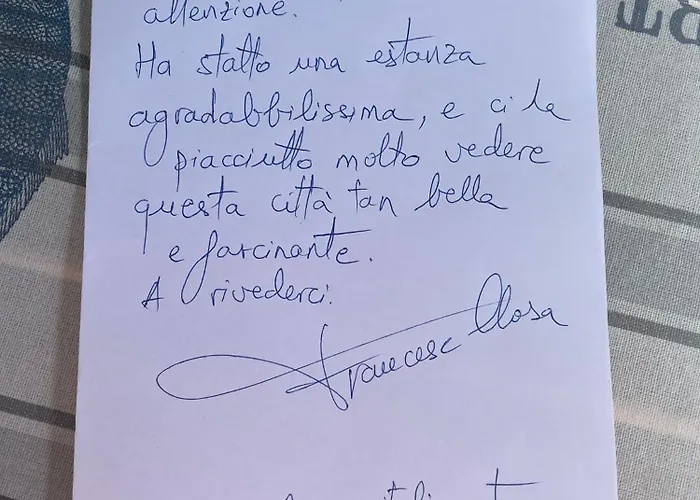 attenzione.
Ha statto una estanza
agradabbilissima, e ci la
piacciutto molto vedere
questa città tan bella
e fascinante.
A rivederci.
Francesc Closa